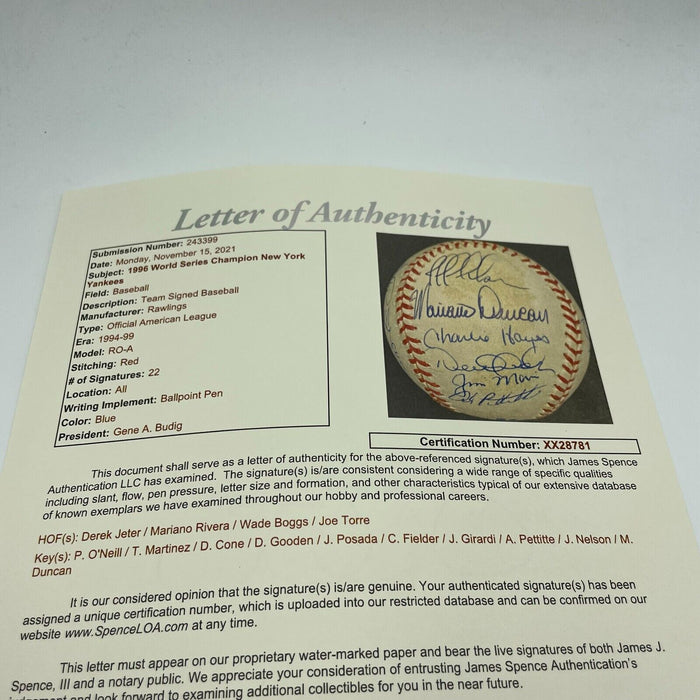 Letter of Authenticity
Submission Number: 243399
Date: Monday, November 15, 2021
Subject: 1996 World Series Champion New York
Yankees
Field: Baseball
Description: Team Signed Baseball
Manufacturer: Rawlings
Type: Official American League
Era: 1994-99
Model: RO-A
Stitching: Red
# of Signatures: 22
Location: All
Writing Implement: Ballpoint Pen
Color: Blue
President: Gene A. Budig
Mariano Duncan
Charlie Hayes
Certification Number: XX28781
This document shall serve as a letter of authenticity for the above-referenced signature(s), which James Spence
Authentication LLC has examined. The signature(s) is/are consistent considering a wide range of specific qualities
including slant, flow, pen pressure, letter size and formation, and other characteristics typical of our extensive database
of known exemplars we have examined throughout our hobby and professional careers.
HOF(s): Derek Jeter / Mariano Rivera / Wade Boggs / Joe Torre
Key(s): P. O'Neill / T. Martinez / D. Cone / D. Gooden / J. Posada / C. Fielder / J. Girardi / A. Pettitte / J. Nelson / M.
Duncan
It is our considered opinion that the signature(s) is/are genuine. Your authenticated signature(s) has been
assigned a unique certification number, which is uploaded into our restricted database and can be confirmed on our
website www.SpenceLOA.com at any time.
This letter must appear on our proprietary water-marked paper and bear the live signatures of both James J.
Spence, III and a notary public. We appreciate your consideration of entrusting James Spence Authentication's
judgement and look forward to examining additional collectibles for you in the near future.